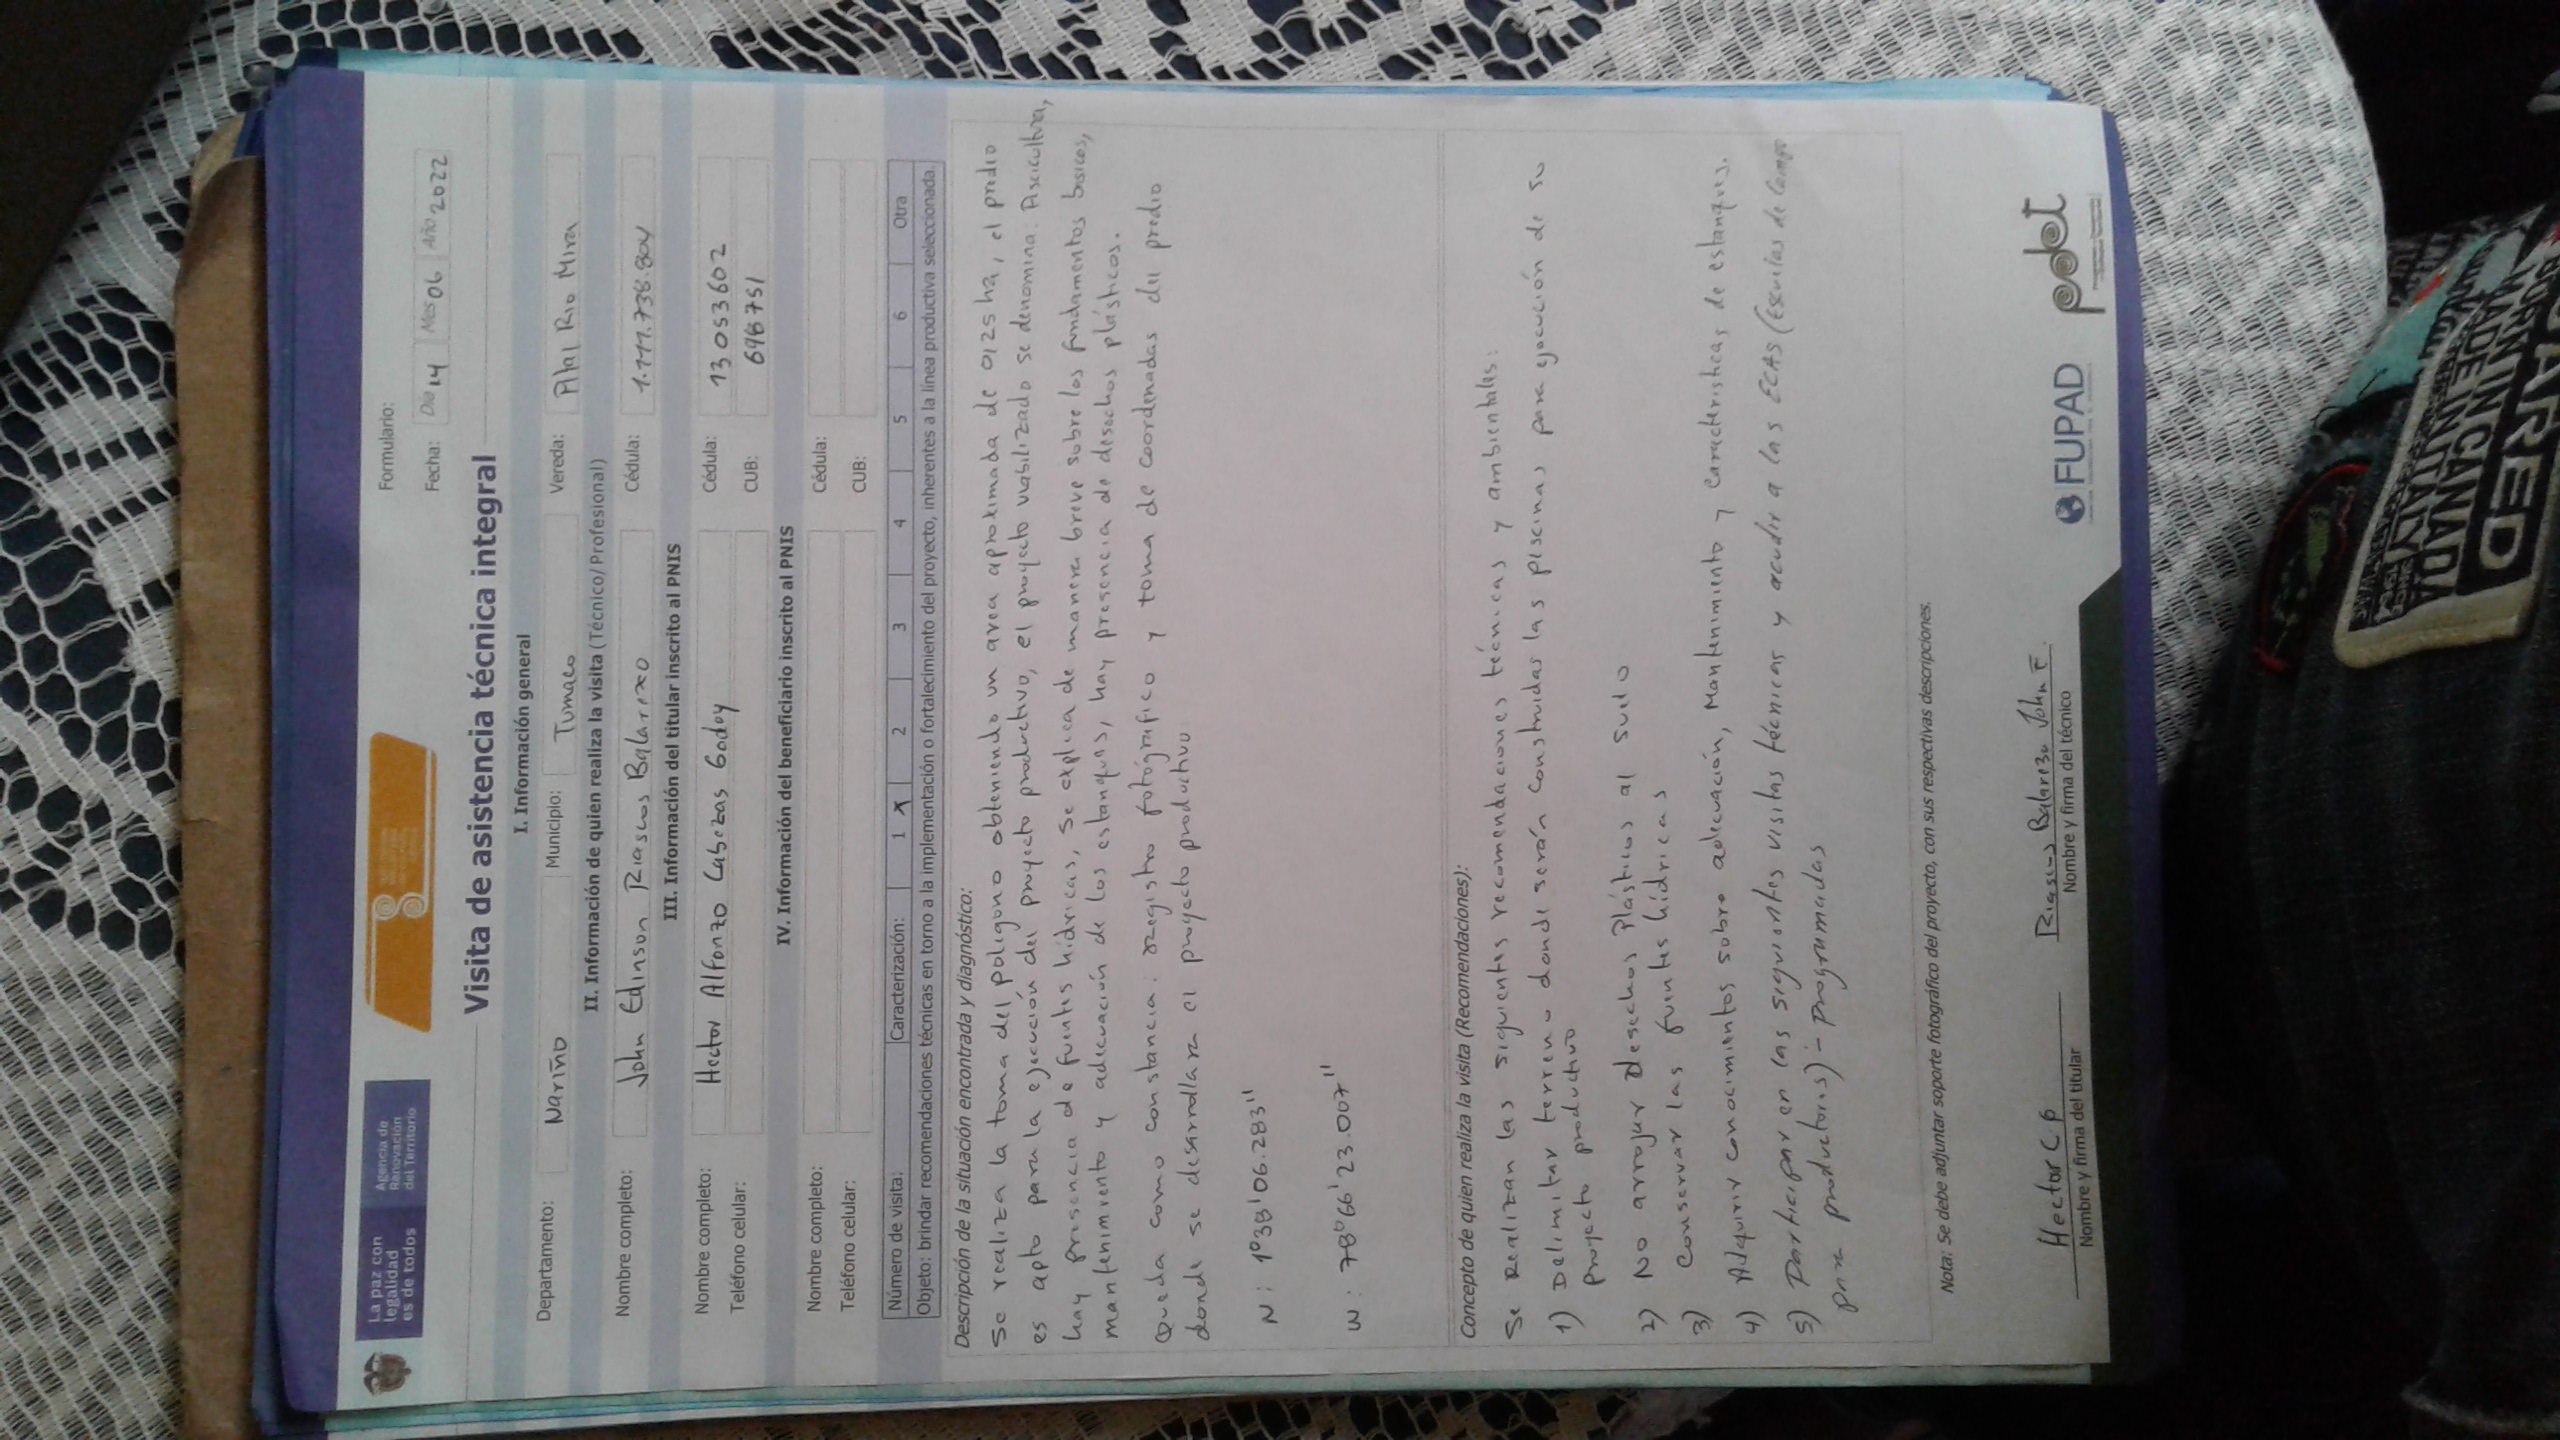 La paz con
legalidad
es de todos
Agencia de
Renovación
del Territorio
Formulario:
Fecha: Día 14 Mes 06 Año 2022
Visita de asistencia técnica integral
I. Información general
Departamento: Nariño Municipio: Tumaco Vereda: Pital Rio Mira
II. Información de quien realiza la visita (Técnico/Profesional)
Nombre completo: John Edinson Riascos Balarezo Cédula: 1.111.738.804
III. Información del titular inscrito al PNIS
Nombre completo: Hector Alfonzo Cabezas Godoy Cédula: 13053602
Teléfono celular: CUB: 698751
IV. Información del beneficiario inscrito al PNIS
Nombre completo: Cédula:
Teléfono celular: CUB:
Número de visita: Caracterización: 1 x 2 3 4 5 6 Otra
Objeto: brindar recomendaciones técnicas en torno a la implementación o fortalecimiento del proyecto, inherentes a la línea productiva seleccionada.
Descripción de la situación encontrada y diagnóstico:
Se realiza la toma del poligono obteniendo un area aproximada de 0,25 ha, el predio
es apto para la ejecución del proyecto productivo, el proyecto viabilizado se denomina: Piscicultura,
hay presencia de fuentes hídricas, se explica de manera breve sobre los fundamentos basicos,
mantenimiento y adecuación de los estanques, hay presencia de desechos plásticos.
Queda como constancia: registro fotográfico y toma de coordenadas del predio
donde se desarrollara el proyecto productivo
N: 1°38'06.283"
W: 78°66'23.007"
Concepto de quien realiza la visita (Recomendaciones):
Se Realizan las siguientes recomendaciones técnicas y ambientales:
1) Delimitar terreno donde serán construidas las piscinas para ejecución de su
Proyecto productivo
2) No arrojar desechos Plásticos al suelo
3) Conservar las fuentes hídricas
4) Adquirir conocimientos sobre adecuación, Mantenimiento y características de estanques.
5) Participar en las siguientes visitas técnicas y acudir a las ECAS (Escuelas de Campo
para productores) - Programadas
Nota: Se debe adjuntar soporte fotográfico del proyecto, con sus respectivas descripciones.
Hector C B
Nombre y firma del titular
Riascos Balarezo John E.
Nombre y firma del técnico
FUPAD
pdet